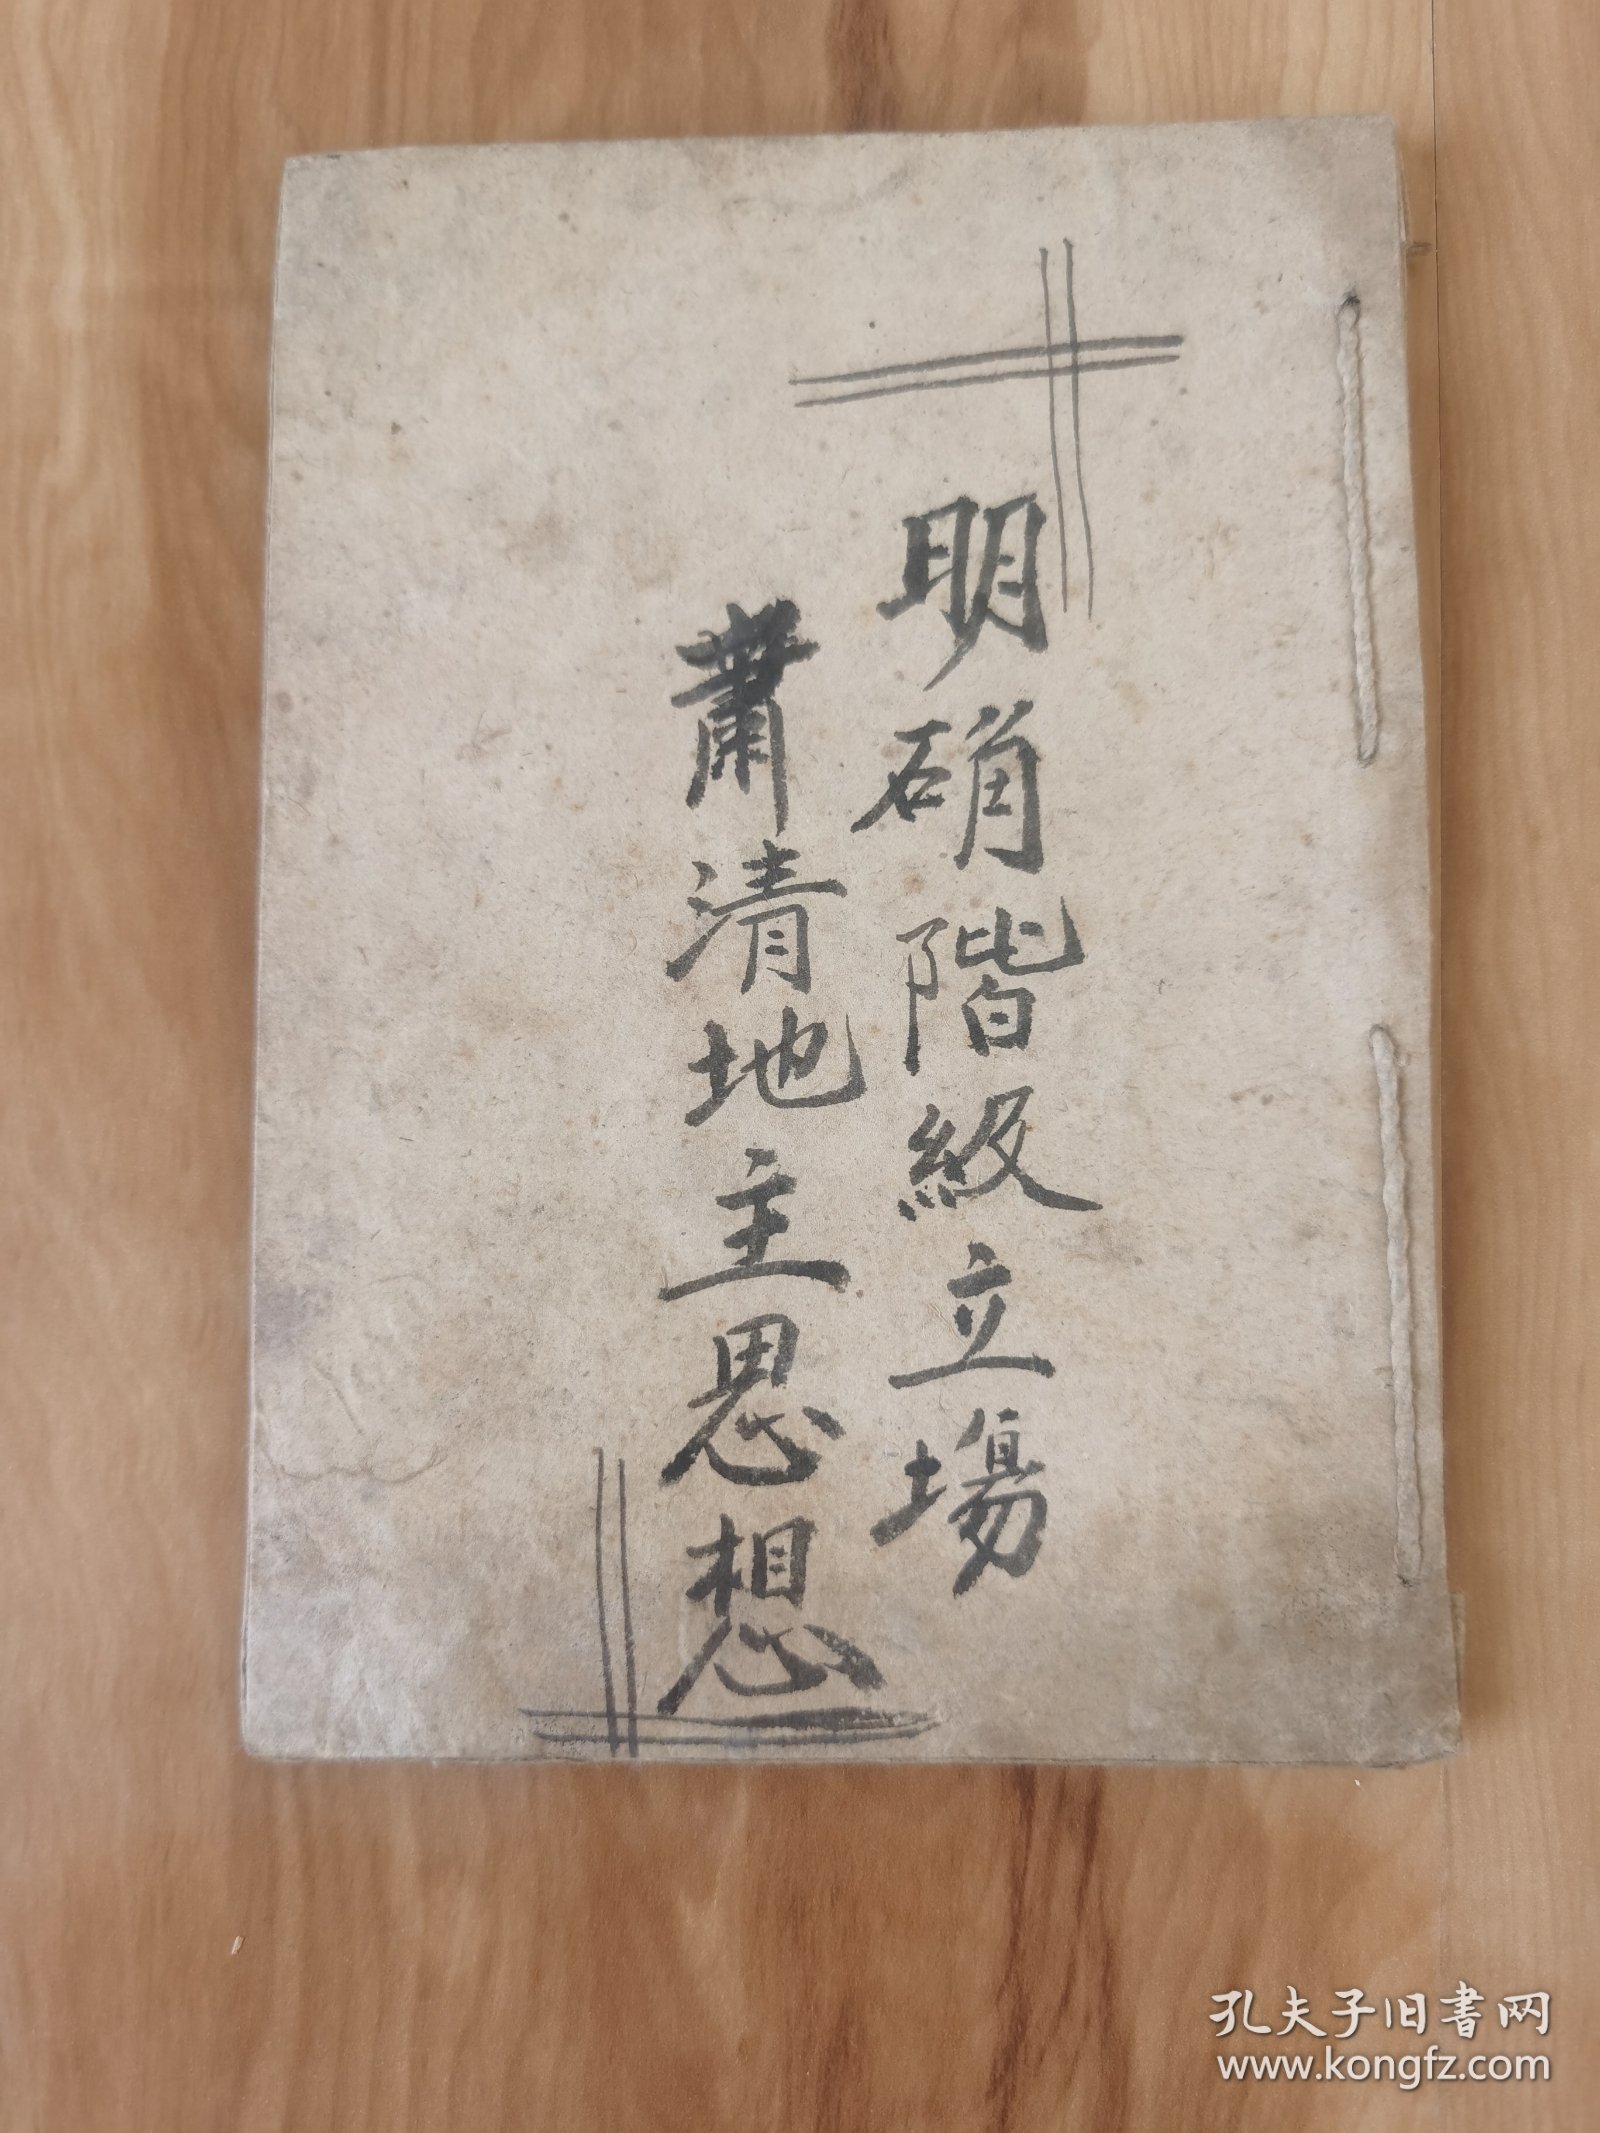 明确階級立場
蕭清地主思想
孔夫子旧書网
www.kongfz.com